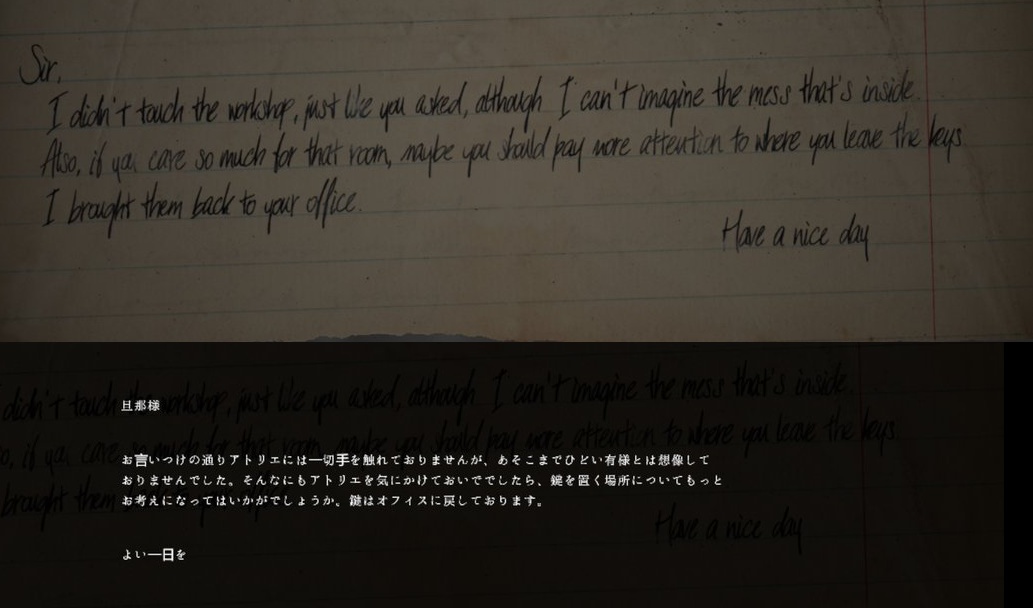 Sir,
I didn't touch the workshop, just like you asked, although I can't imagine the mess that's inside.
Also, if you care so much for that room, maybe you should pay more attention to where you leave the keys
I brought them back to your office.
Have a nice day
didn't touch the workshop, just like you asked, although I can't imagine the mess that's inside.
o, if you care so much for that room, maybe you should pay more attention to where you leave the keys
brought them back
Have a nice day
旦那様
お言いつけの通りアトリエには一切手を触れておりませんが、あそこまでひどい有様とは想像して
おりませんでした。そんなにもアトリエを気にかけておいででしたら、鍵を置く場所についてもっと
お考えになってはいかがでしょうか。鍵はオフィスに戻しております。
よい一日を